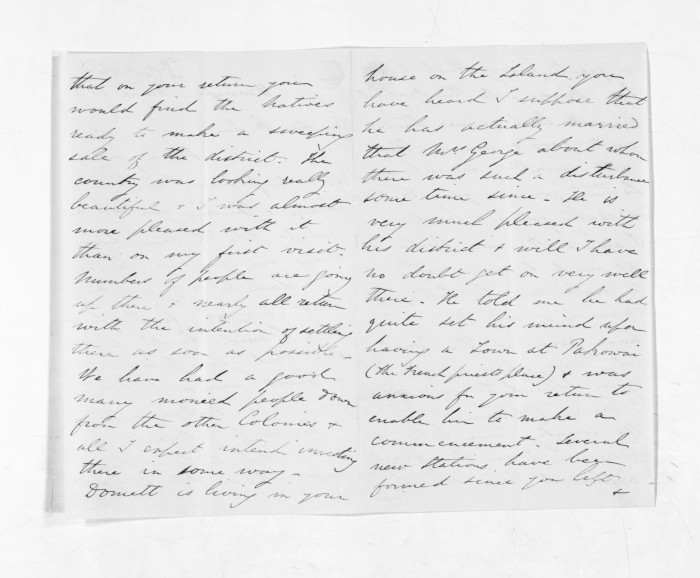 that on your return you
would find the Natives
ready to make a sweeping
sale of the district. The
country was looking really
beautiful & I was almost
more pleased with it
than on my first visit.
Numbers of people are going
up there & nearly all return
with the intention of settling
there as soon as possible.
We have had a good
many monied people down
from the other Colonies &
all I expect intend investing
there in some way.
Domett is living in your
house on the Island. you
have heard I suppose that
he has actually married
that Mrs George about whom
there was such a disturbance
some time since. He is
very much pleased with
his district & will I have
no doubt get on very well
there. He told me he had
quite set his mind upon
having a Town at Pakowai
(the French priests place) & was
anxious for your return to
enable him to make a
commencement. Several
new Stations have been
formed since you left
&